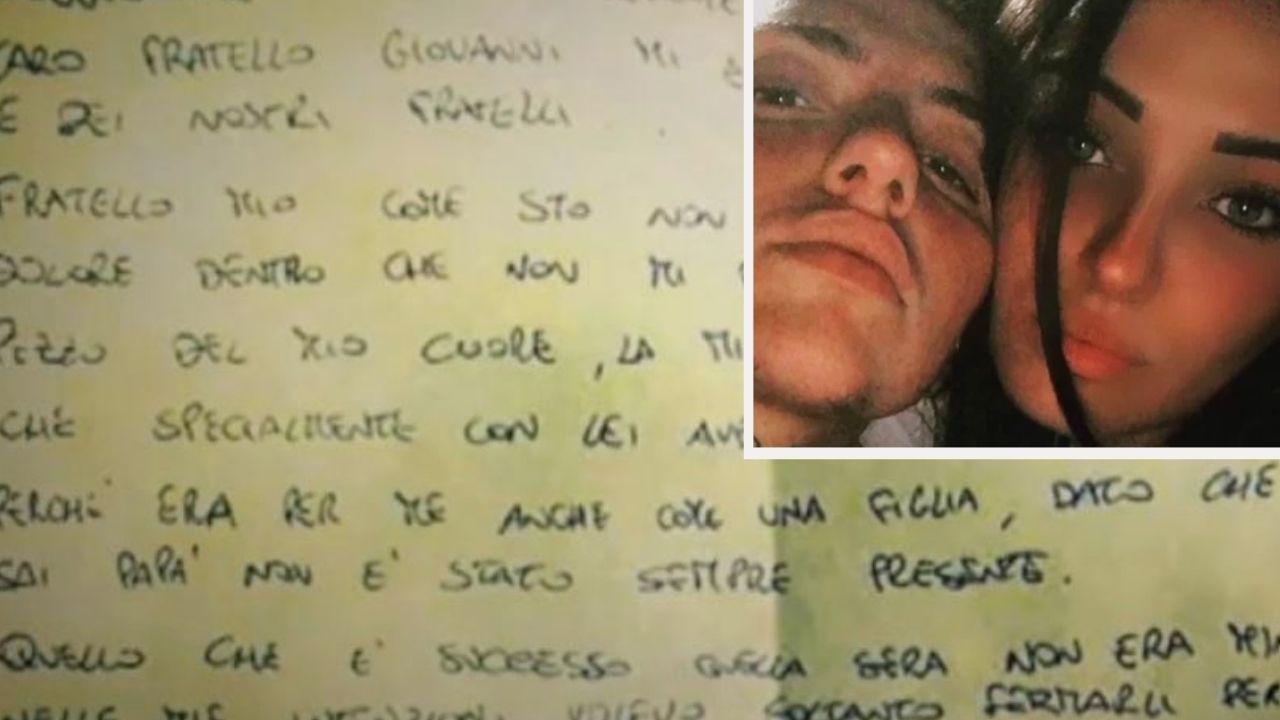 CARO FRATELLO GIOVANNI MI
E DEI NOSTRI FRATELLI
FRATELLO MIO COME STO NON
DOLORE DENTRO CHE NON MI
PEZZO DEL MIO CUORE, LA
CHÈ SPECIALMENTE CON LEI
PERCHE' ERA PER ME ANCHE COME UNA FIGLIA, DATO CHE
SAI PAPA' NON E' STATO SEMPRE PRESENTE.
QUELLO CHE E' SUCCESSO QUELLA SERA NON ERA
NELLE MIE INTENZIONI VOLEVO SOLTANTO FERMARLI PER